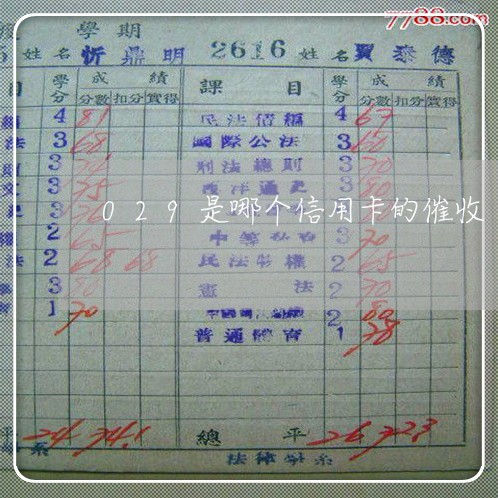 7788.com
學期
姓名 忻鼎明 2616 姓名 賈泰德
目 學分 成績 課目 學分 成績
分數 扣分 實得 分數 扣分 實得
4 81 民法債編 4 67
法 3 68 國際公法 3 60
3 刑法總則 3 70
3 75 西洋通史 3 80
029是哪个信用卡的催收
2 65 3 70
法 2 68 68 民法物權 2 65
3 80 憲法 2 70
1 70 2 80
普通體育 1 78
平 24 74.1 總平 26 72.3
系 法律學系